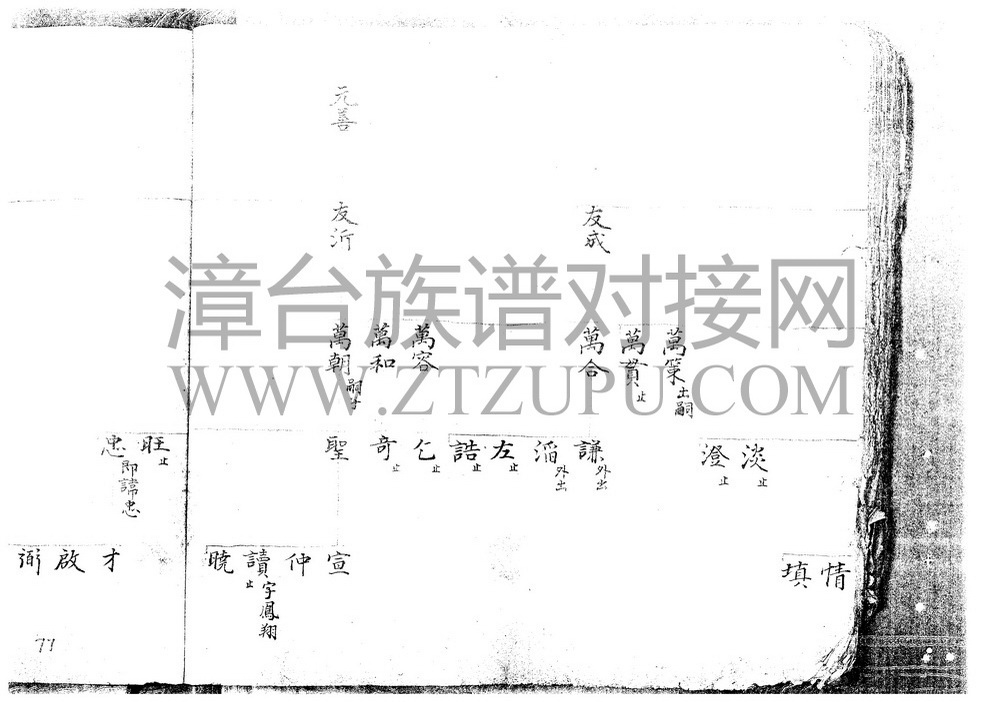 元善
友成
友沂
萬策 出嗣
萬貫 止
萬合
萬容
萬和
萬朝 嗣子
淡 止
澄 止
謙 外出
滔 外出
左 止
誥 止
乞 止
奇 止
聖
旺 止
忠 即諱忠
情
填
宣
仲
讀 字鳳翔 止
曉
才
啟
弼
77
漳台族谱对接网
WWW.ZTZUPU.COM